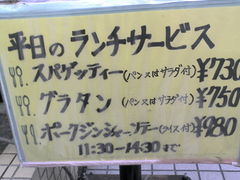 平日のランチサービス
49. スパゲッティー(パン又はサラダ付) ¥730
49. グラタン (パン又はサラダ付) ¥750
49. ポークジンジャーソテー(ライス付) ¥880
11:30-14:30まで